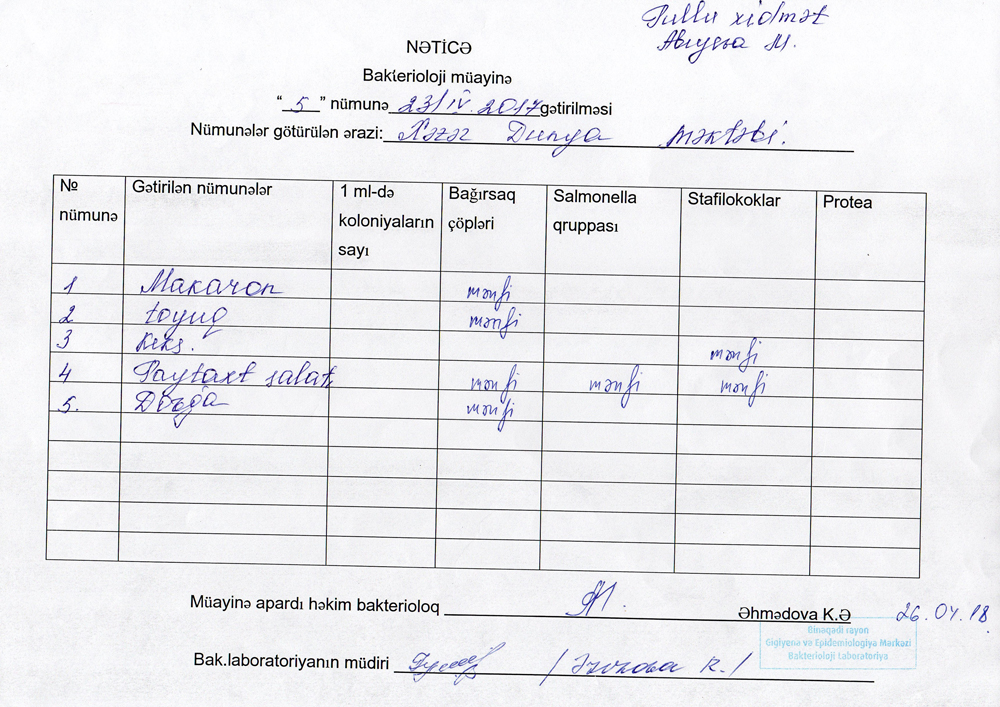 Pullu xidmət
M.
NƏTİCƏ
Bakterioloji müayinə
“ 5 ” nümunə 23/IV. 2017 gətirilməsi
Nümunələr götürülən ərazi: Xəzər Dunya məktəbi.
№ nümunə Gətirilən nümunələr 1 ml-də koloniyaların sayı Bağırsaq çöpləri Salmonella qruppası Stafilokoklar Protea
1 Makaron mənfi
2 toyuq mənfi
3 keks. mənfi
4 Paytaxt salatı mənfi mənfi mənfi
5. Dovğa mənfi
Müayinə apardı həkim bakterioloq Əhmədova K.Ə 26.04.18
Binəqədi rayon
Gigiyena və Epidemiologiya Mərkəzi
Bakterioloji Laboratoriya
Bak.laboratoriyanın müdiri R./